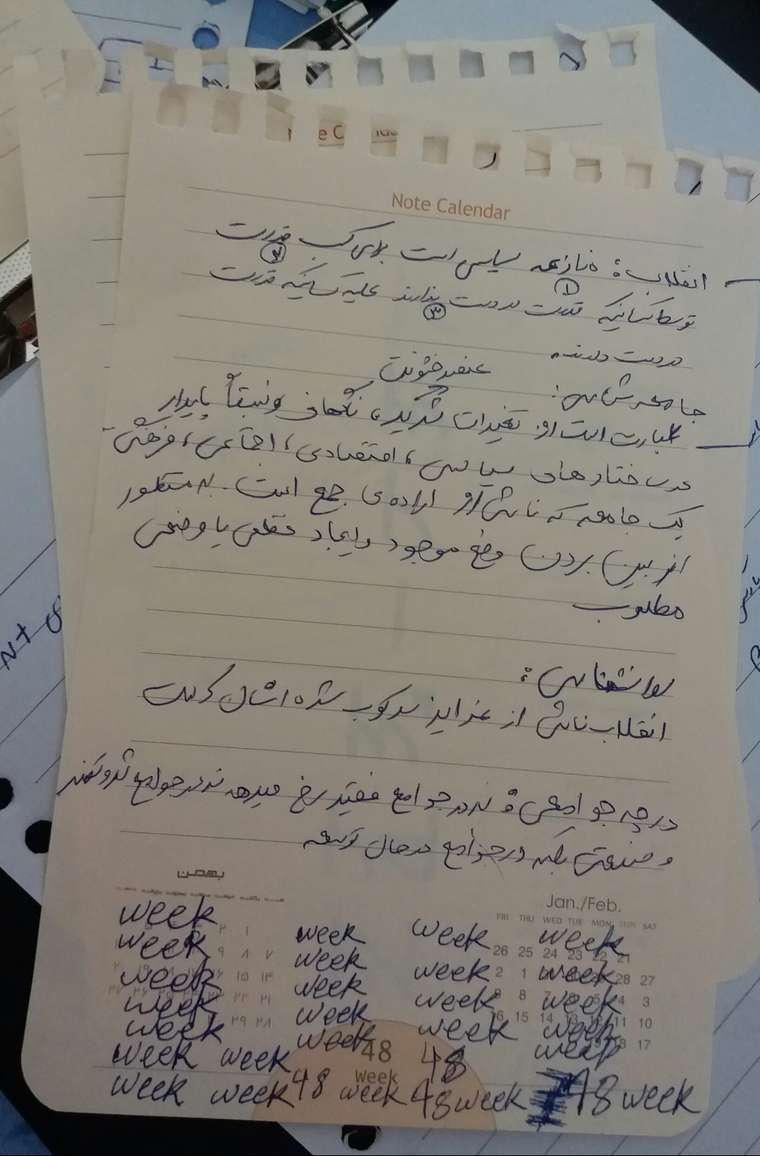 Note Calendar
انقلاب: منازعه سیاسی است برای کسب قدرت
① ②
توسط کسانیکه قدرت در دست ندارند علیه کسانیکه قدرت
③
در دست دارند
جامعه شناسی: عنصر خشونت
عبارت است از تغیرات شدید، ناگهانی و نسبتاً پایدار
در ساختارهای سیاسی، اقتصادی، اجتماعی، فرهنگی
یک جامعه که ناشی از اراده‌ی جمع است. به منظور
از بین بردن وضع موجود و ایجاد وضعی
مطلوب
روانشناسی:
انقلاب ناشی از غرایز سرکوب شده انسان است
در چه جوامعی؟ نه در جوامع فقیر رخ میدهد نه در جوامع ثروتمند
و صنعتی بلکه در جوامع در حال توسعه
بهمن
Jan./Feb.
FRI THU WED TUE MON SUN SAT
week week week week
week week week week
week week week week
week week week week
week week week week
week week 48 48
week
week week 48 week 48 week 48 week